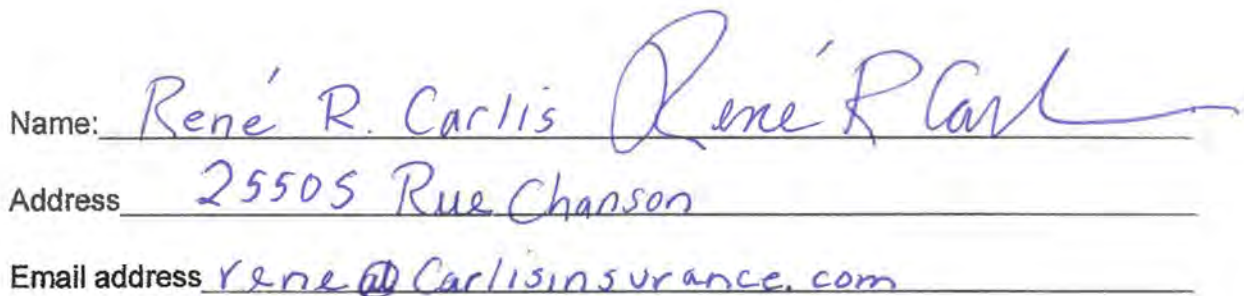 Name: René R. Carlis René R Carl
Address 25505 Rue Chanson
Email address rene@Carlisinsurance.com